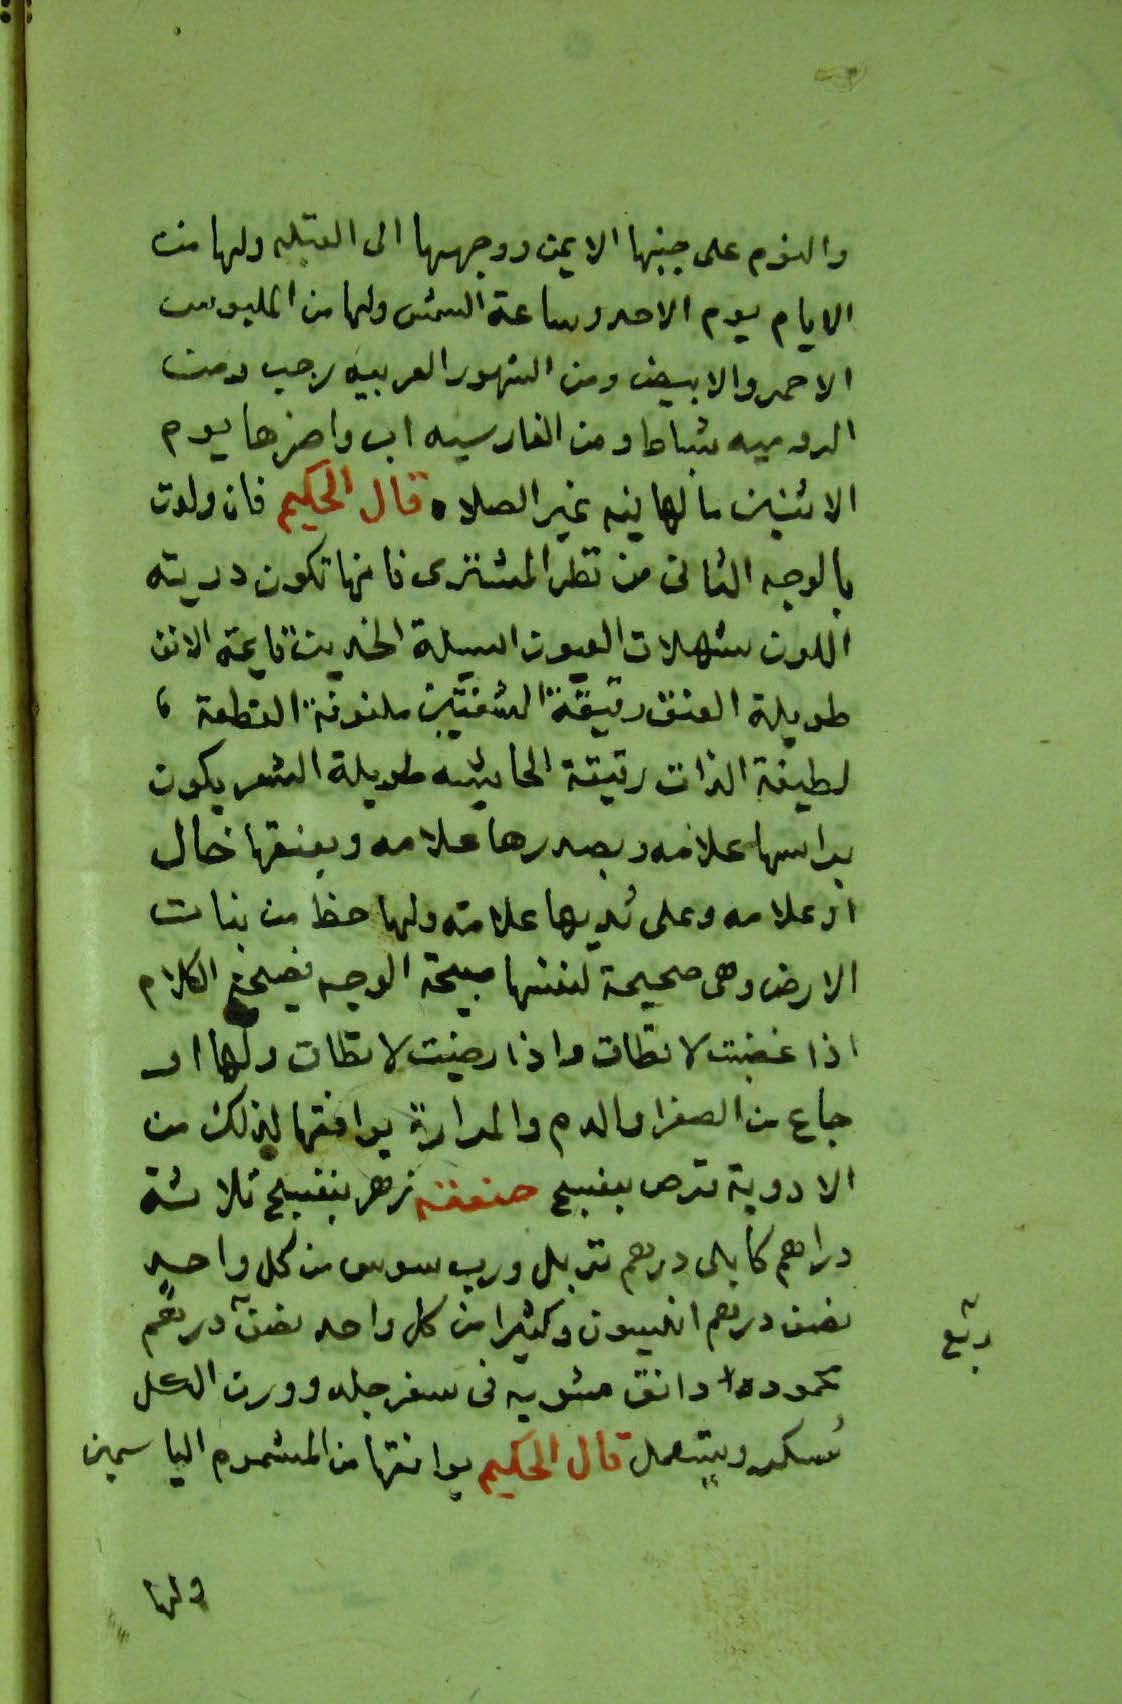 والنوم على جنبها الايمن ووجهها الى القبله ولها من
الايام يوم الاحد وساعة الشمس ولها من الملبوس
الاحمر والابيض ومن الشهور العربيه رجب ومن
الروميه شباط ومن الفارسيه اب واضرها يوم
الاثنين ما لها فيه غير الصلاه قال الحكيم فان ولدت
بالوجه الثانى من نظر المشترى فانها تكون دريته
اللون شهلات العيون اسيلة الخدين قايمة الانف
طويلة العنق رقيقة الشفتين ملفوفة القطعة
لطيفة الذات رقيقة الحاشيه طويلة الشعر يكون
براسها علامه وبصدرها علامه وبعنقها خال
او علامه وعلى ثديها علامته ولها حظ من بنات
الارض وهى صحيحة لنفسها صبيحة الوجه فصيحة الكلام
اذا غضبت لا تطاق واذا رضيت لا تطاق ولها او
جاع من الصفرا والدم والمرارة يوافقها لذلك من
الادوية قرص بنفسج صنعته زهر بنفسج ثلاثة
دراهم كابلى درهم تربل ورب سوس من كل واحد
نصف درهم انيسون وكثيرا من كل واحد نصف درهم
ربع
محموده دانق مشويه فى سفرجله ووزن الكل
سكر ويستعمل قال الحكيم يوافقها من المشموم الياسمين
ولها